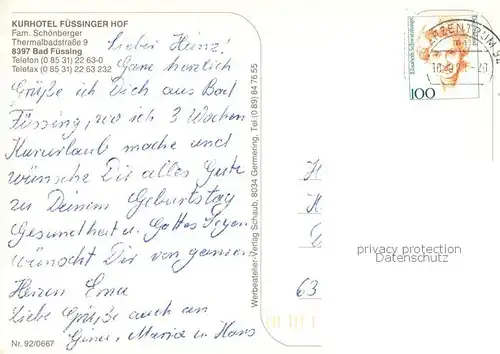 KURHOTEL FÜSSINGER HOF
Fam. Schönberger
Thermalbadstraße 9
8397 Bad Füssing
Telefon (0 85 31) 22 63-0
Telefax (0 85 31) 22 63 232
Lieber Heinz!
Ganz herzlich
Grüße ich Dich aus Bad
Füssing, wo ich 3 Wochen
Kururlaub mache und
wünsche Dir alles Gute
zu Deinem Geburtstag
Gesundheit u. Gottes Segen
wünscht Dir von ganzem
Herzen Erna
Liebe Grüße auch an
Maria u Hans
Nr. 92/0667
Werbeatelier-Verlag Schaub, 8034 Germering, Tel. (0 89) 84 76 55
Elisabeth Schwarzhaupt
100
63
privacy protection
(DATENSCHUTZ)